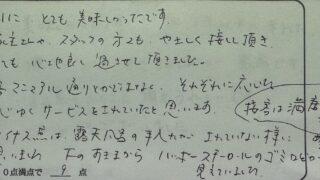 に とても 美味しかったです。
スタッフの方々も やさしく 接して頂き
ても 心地良く 過させて頂きました。
マニュアル通りとかではなく、それぞれに応じた
サービスをされていたと思います
接客は満
イナス点は、露天風呂の手入れが されていない様に
下のすきまから ハッポースチロールのゴミなどが
見えていました。
0点満点で 9 点